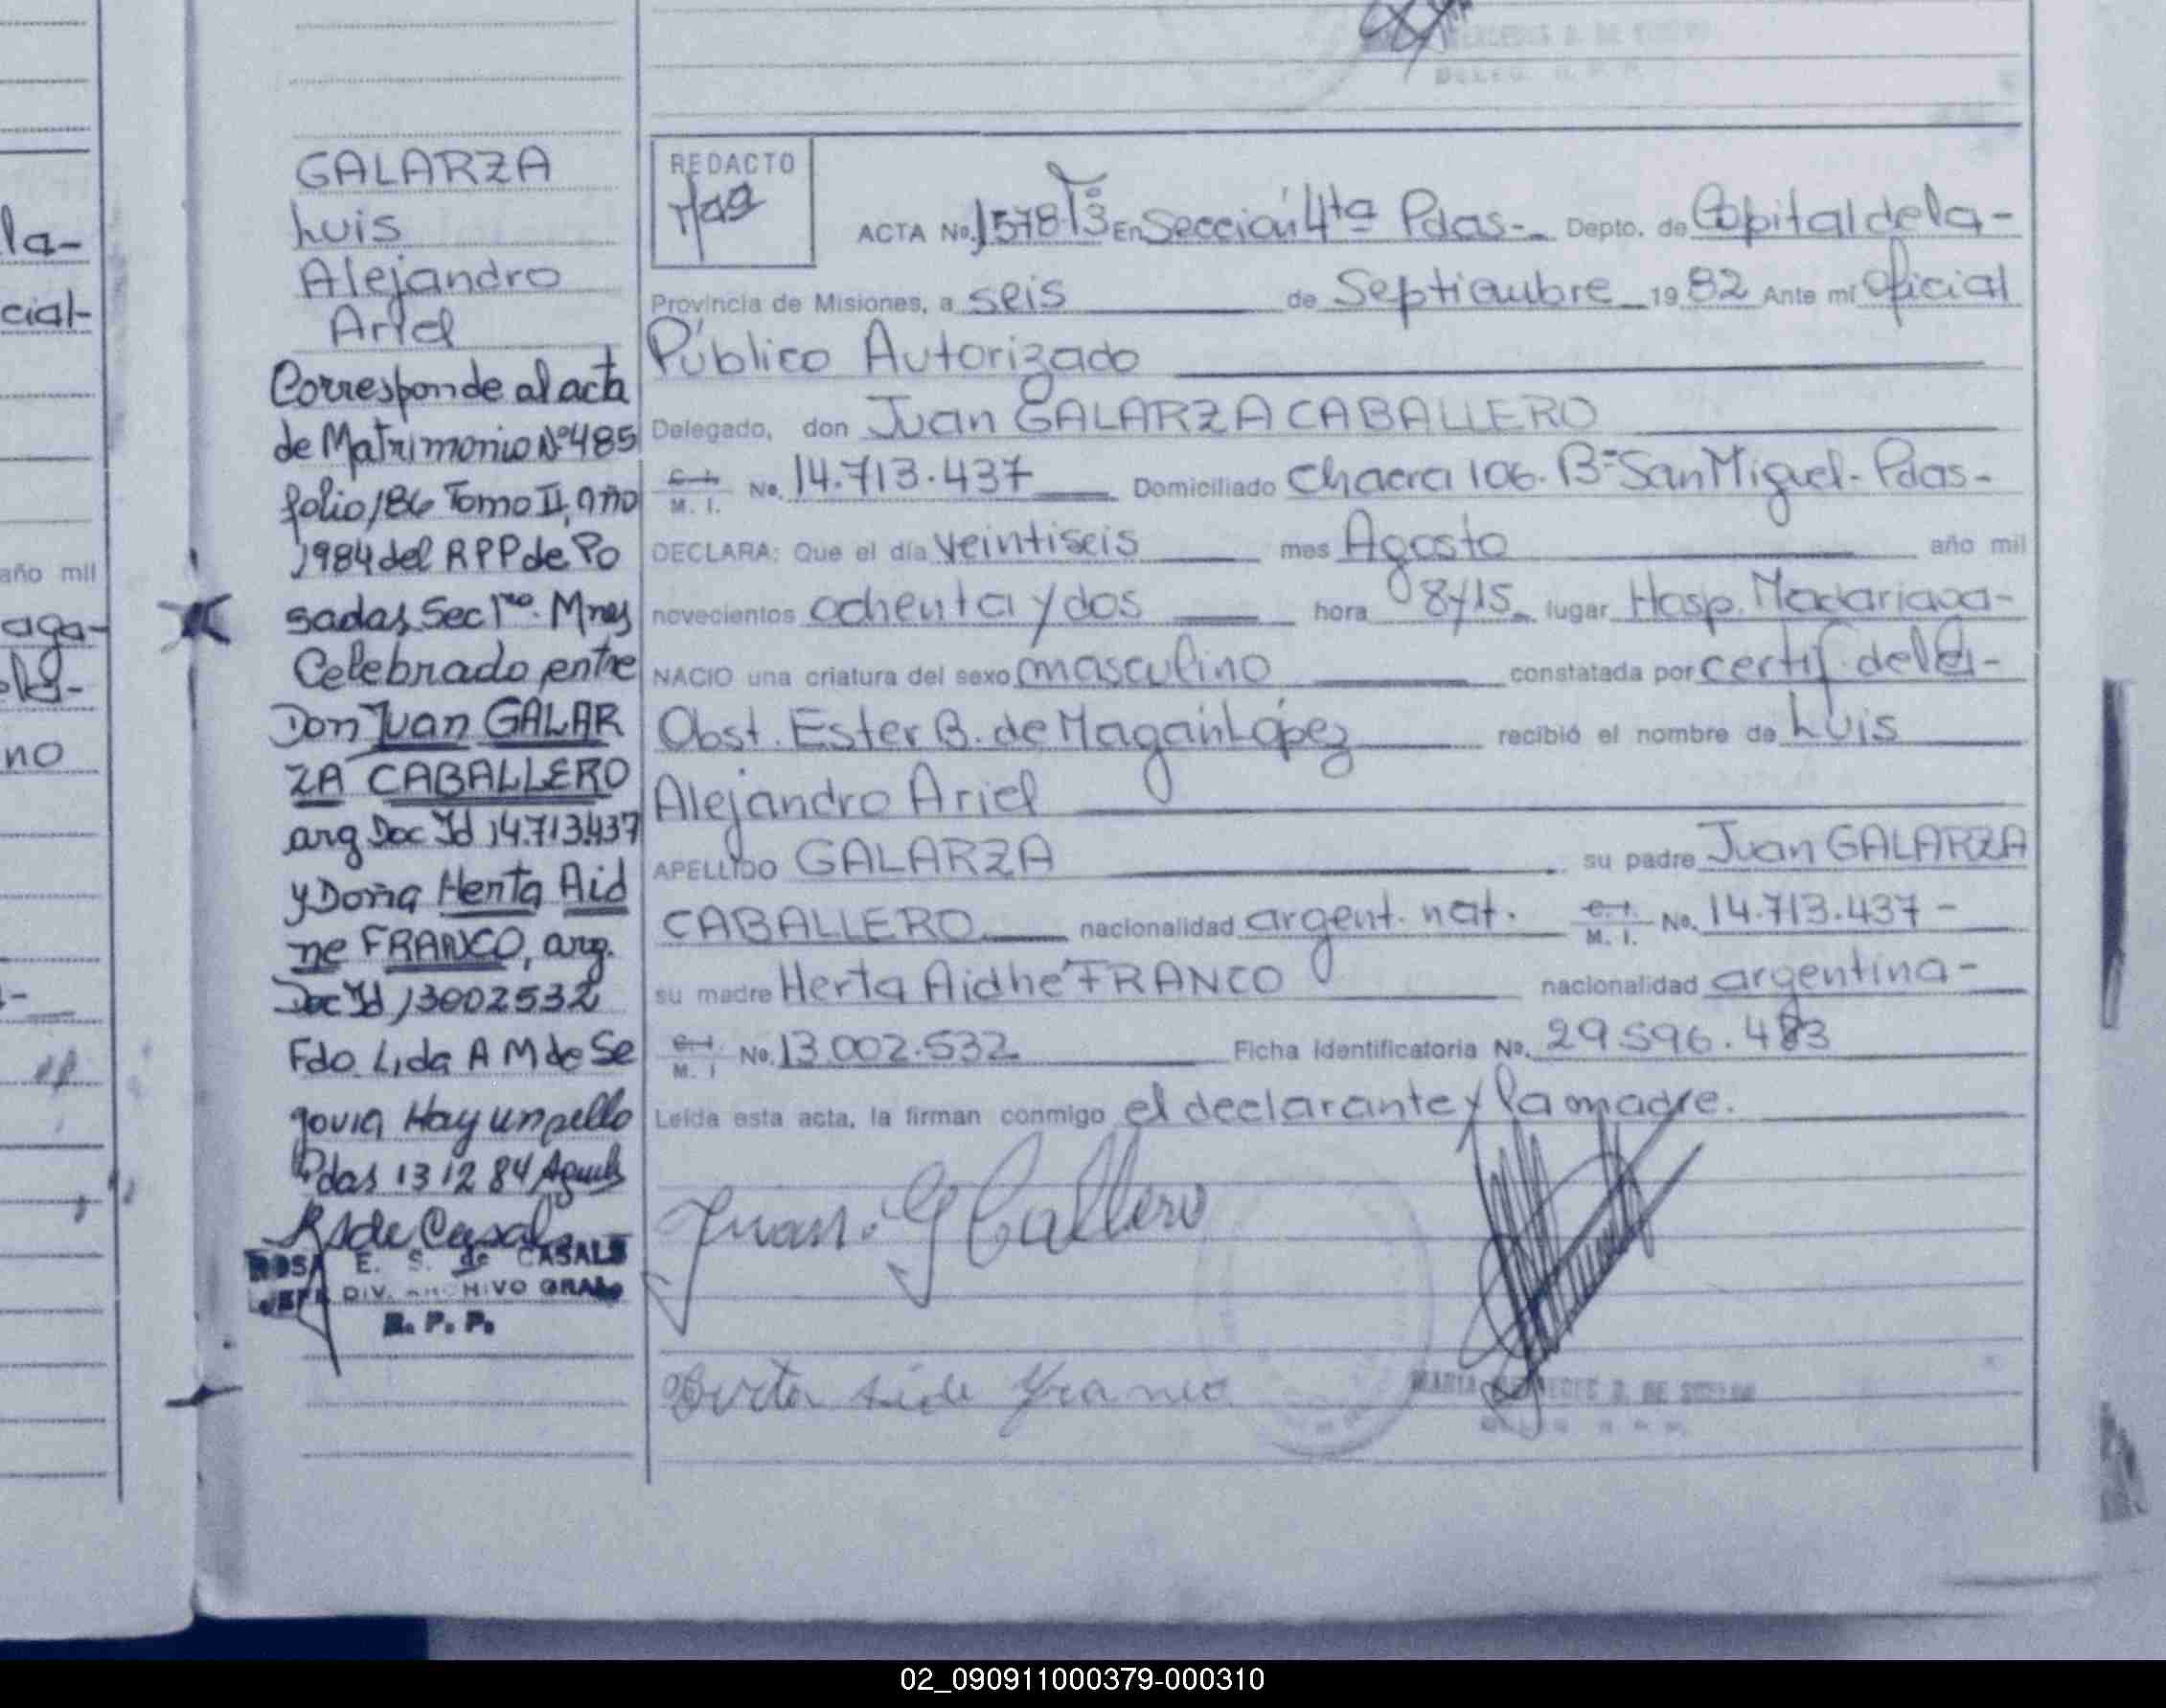 la-
cial-
año mil
aga-
no
GALARZA
Luis
Alejandro
Ariel
Corresponde al acta
de Matrimonio Nº485
folio 186 Tomo II, año
1984 del RPP de Po
sadas, Sec 1ra. Mnes
Celebrado entre
Don Juan GALAR
ZA CABALLERO
arg Doc Id 14.713.437
y Doña Herta Aid
ne FRANCO, arg.
Doc Id 13002532
Fdo. Lida A M de Se
govia Hay un sello
Pdas 13 12 84
RS de Casals
ROSA E. S. de CASALS
JEFE DIV. ARCHIVO GRAL.
R. P. P.
REDACTO
ACTA No. 1578 Tº 3 En Sección 4ta Pdas-- Depto. de Capital de la-
Provincia de Misiones, a seis de Septiembre 1982 Ante mi Oficial
Público Autorizado
Delegado, don Juan GALARZA CABALLERO
C.I. M. I. No. 14.713.437 Domiciliado Chacra 106. Bº San Miguel- Pdas-
DECLARA: Que el día veintiseis mes Agosto año mil
novecientos ochenta y dos hora 08y15 lugar Hosp. Madariaga-
NACIO una criatura del sexo masculino constatada por certif. de la-
Obst. Ester B. de Magain López recibió el nombre de Luis
Alejandro Ariel
APELLIDO GALARZA su padre Juan GALARZA
CABALLERO nacionalidad argent. nat. C.I. M. I. No. 14.713.437-
su madre Herta Aidhe FRANCO nacionalidad argentina-
C.I. M. I No. 13.002.532 Ficha Identificatoria No. 29.596.483
Leída esta acta, la firman conmigo el declarante y la madre.
Juan. G Callero
Herta Aide Franco
MARIA MERCEDES D. DE
02_090911000379-000310